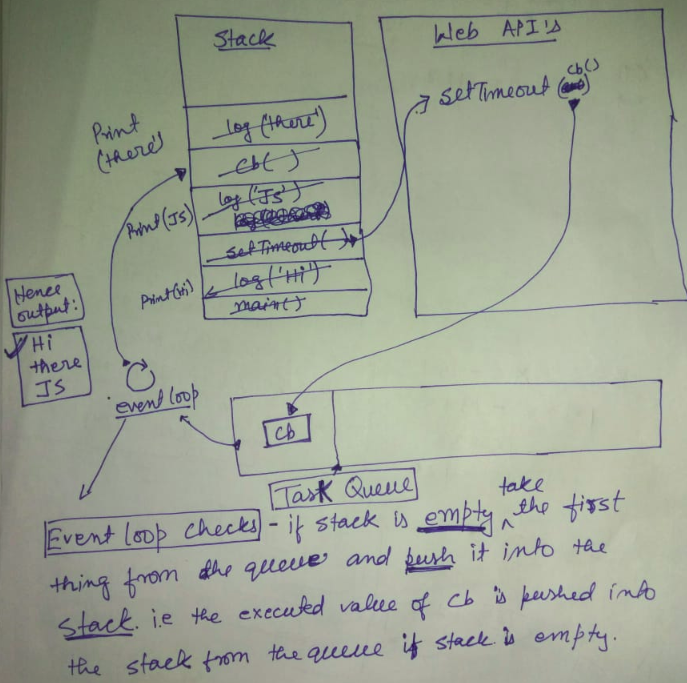 Stack
Web API's
cb()
setTimeout ( )
log('there')
cb( )
log('JS')
setTimeout( )
log('Hi')
main()
Print
(there)
Print(JS)
Print(Hi)
Hence
output:
Hi
there
JS
event loop
Cb
Task Queue
take
Event loop checks - if stack is empty ^ the first
thing from the queue and push it into the
stack. i.e the executed value of cb is pushed into
the stack from the queue if stack is empty.